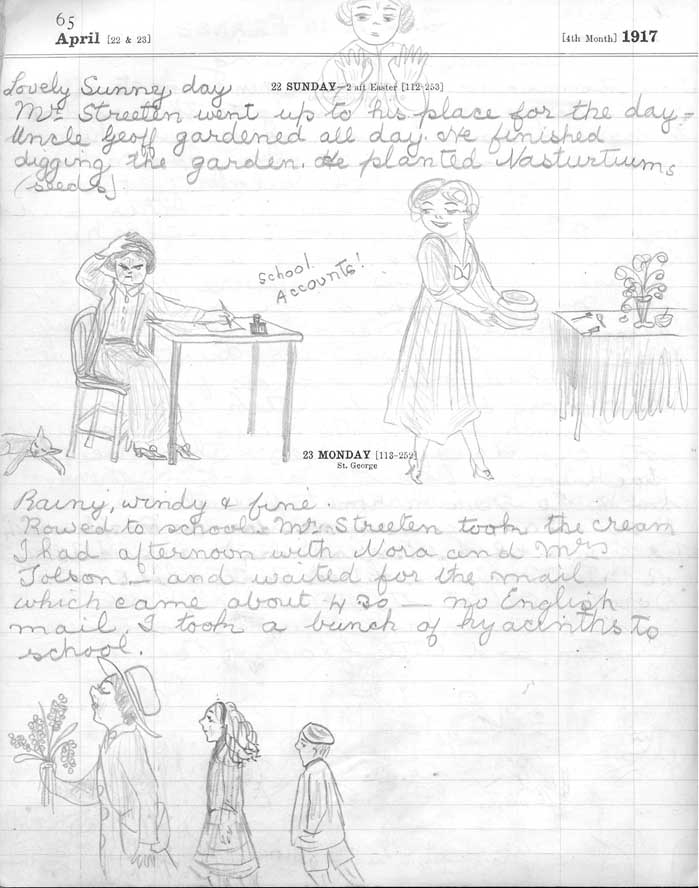 65
April [22 & 23]
[4th Month] 1917
Lovely Sunny day
22 SUNDAY—2 aft Easter [112-253]
Mr Streeten went up to his place for the day -
Uncle Geoff gardened all day. He finished
digging the garden. He planted Nasturtiums
(seeds)
School
Accounts!
23 MONDAY [113-252]
St. George
Rainy, windy & fine.
Rowed to school. Mr Streeten took the cream
I had afternoon with Nora and Mrs
Tolson - and waited for the mail
which came about 4 30 — no English
mail. I took a bunch of hyacinths to
school.